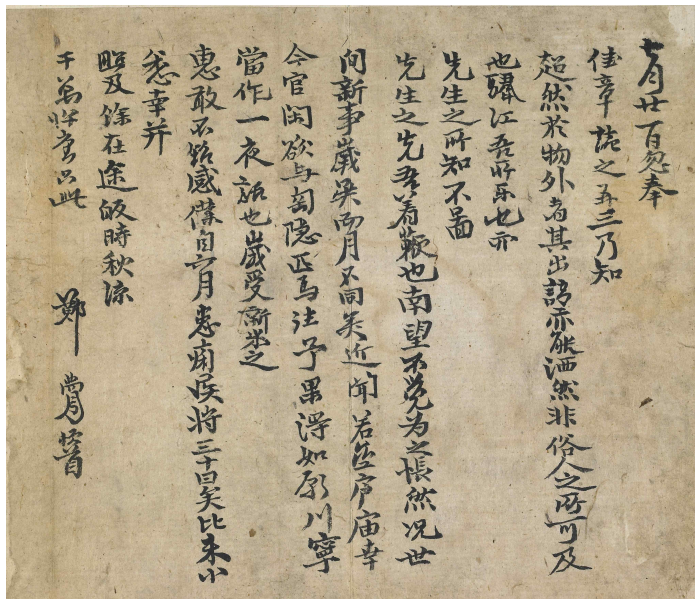 七月廿一日忽奉
佳章誦之再三乃知
超然於物外者其出語亦能洒然非俗人之所可及
也驪江吾所樂也亦
先生之所知不啚
先生之先吾着鞭也南望不覺为之悵然况世
間新事歲月不同矣近聞若齋幸
今官閑欲与匋隐匹馬往予果淂如願川寧
當作一夜話也歲受新米之
惠敢不銘感僕自六月患痢疾将三十日矣比来小
差幸并
照及餘在途皈時秋凉
千萬惟重只此
鄭 首